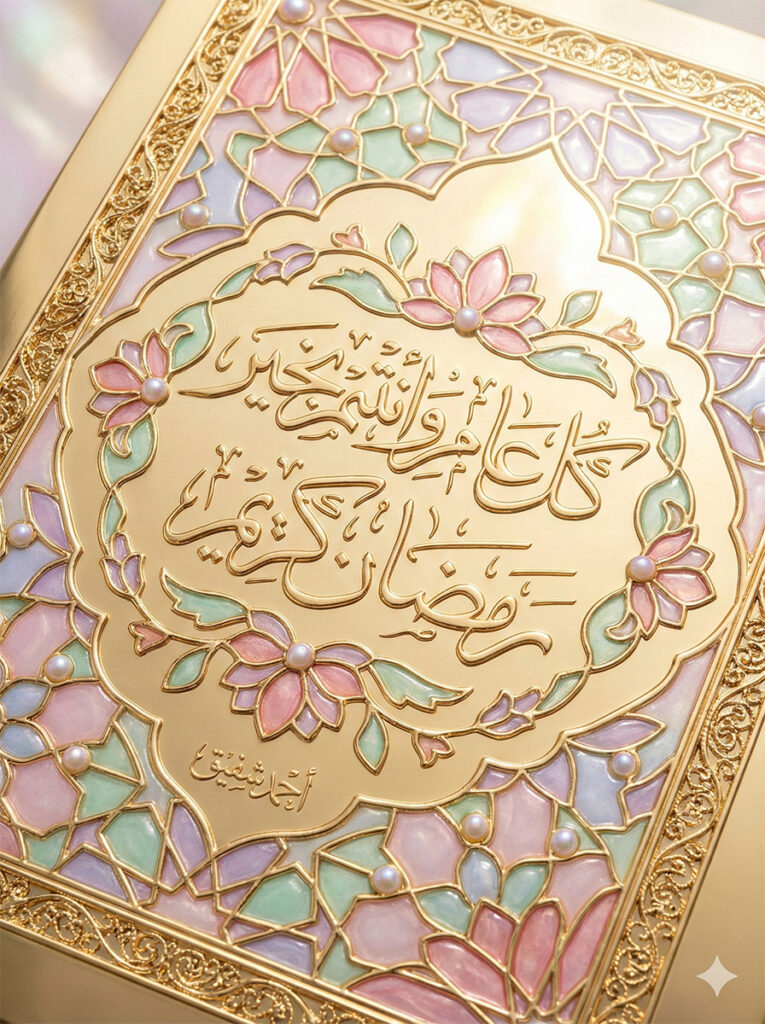 كُل عَام وَأنتم بخير
رمضان كريم
أحمد شفيق